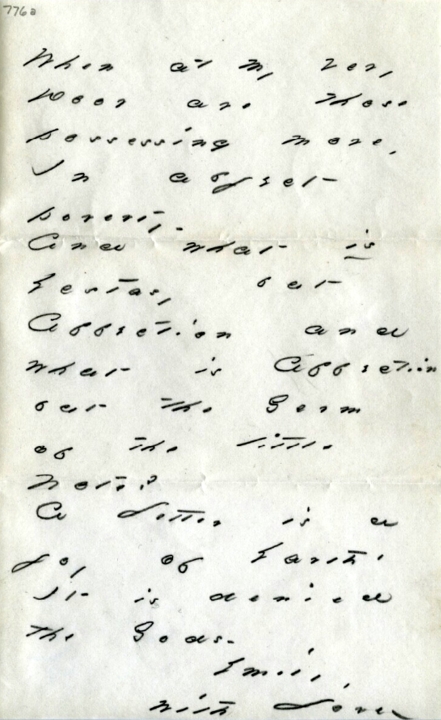 When at my very
Door are those
possessing more,
In abject
poverty -
And what is
Ecstasy but
Affection and
what is Affection
but the Germ
of the little
Note?
A Letter is a
joy of Earth -
It is denied
the Gods -
Emily,
with love
776a